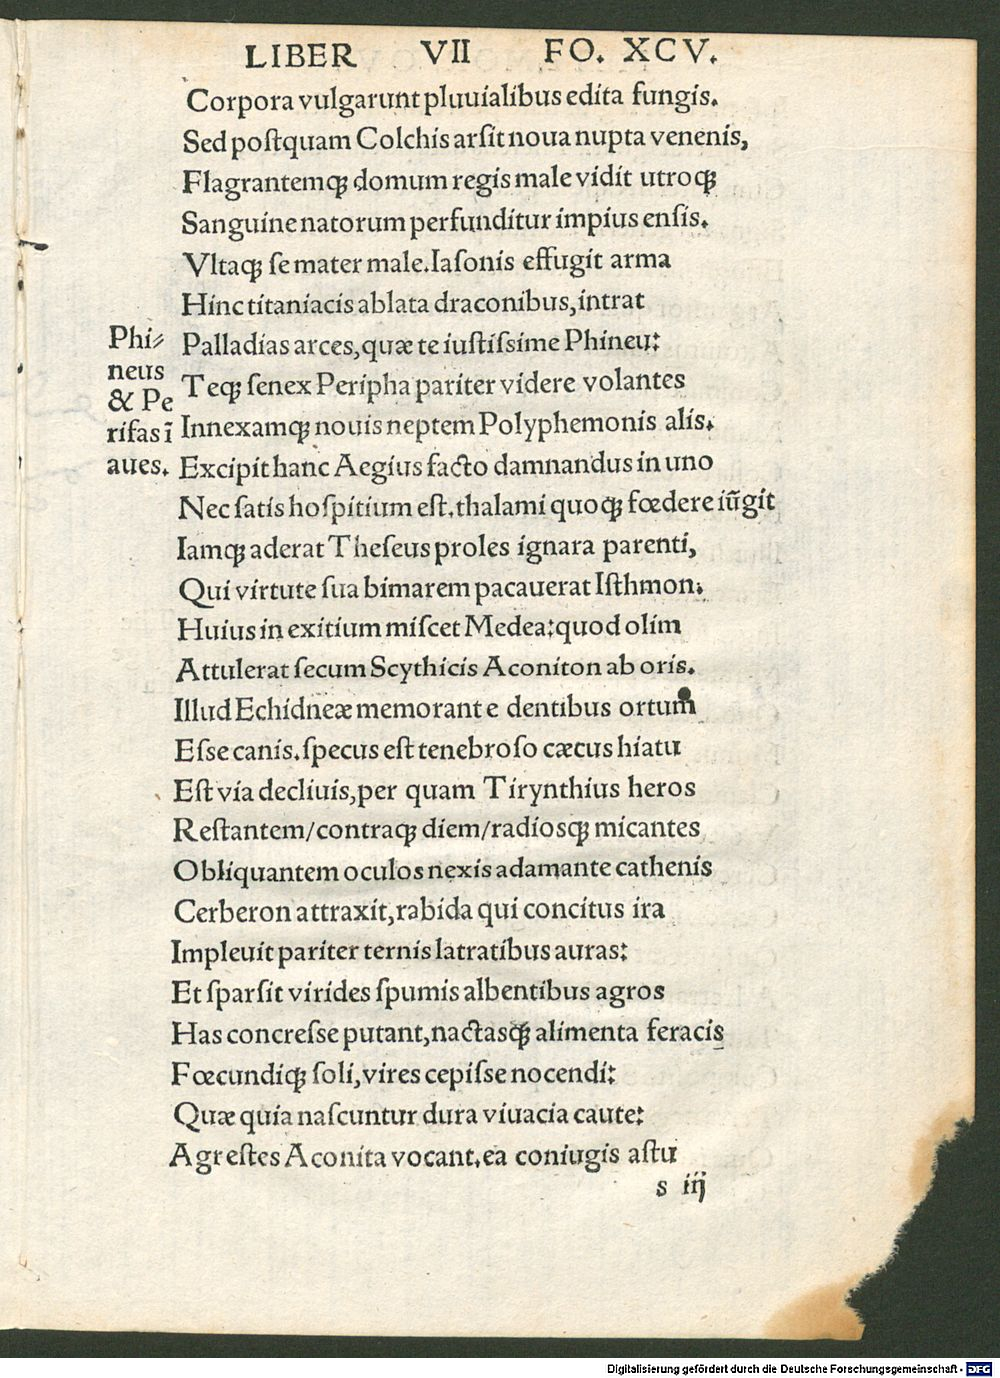 LIBER VII FO. XCV.
Corpora vulgarunt pluuialibus edita fungis.
Sed poſtquam Colchis arſit noua nupta venenis,
Flagrantemqꝫ domum regis male vidit utroqꝫ
Sanguine natorum perfunditur impius enſis.
Vltaqꝫ ſe mater male.Iaſonis effugit arma
Hinc titaniacis ablata draconibus,intrat
Palladias arces,quæ te iuſtiſsime Phineu:
Teqꝫ ſenex Peripha pariter videre volantes
Innexamqꝫ nouis neptem Polyphemonis alis.
Excipit hanc Aegius facto damnandus in uno
Nec ſatis hoſpitium eſt.thalami quoqꝫ fœdere iũgit
Iamqꝫ aderat Theſeus proles ignara parenti,
Qui virtute ſua bimarem pacauerat Iſthmon.
Huius in exitium miſcet Medea:quod olim
Attulerat ſecum Scythicis Aconiton ab oris.
Illud Echidneæ memorant e dentibus ortum
Eſse canis.ſpecus eſt tenebroſo cæcus hiatu
Eſt via decliuis,per quam Tirynthius heros
Reſtantem/contraqꝫ diem/radiosqꝫ micantes
Obliquantem oculos nexis adamante cathenis
Cerberon attraxit,rabida qui concitus ira
Impleuit pariter ternis latratibus auras:
Et ſparſit virides ſpumis albentibus agros
Has concreſse putant,nactasqꝫ alimenta feracis
Fœcundiqꝫ ſoli,vires cepiſse nocendi:
Quæ quia naſcuntur dura viuacia caute:
Agreſtes Aconita vocant.ea coniugis aſtu
s iij
Phi⸗
neus
& Pe
rifas ĩ
aues.
Digitalisierung gefördert durch die Deutsche Forschungsgemeinschaft - DFG